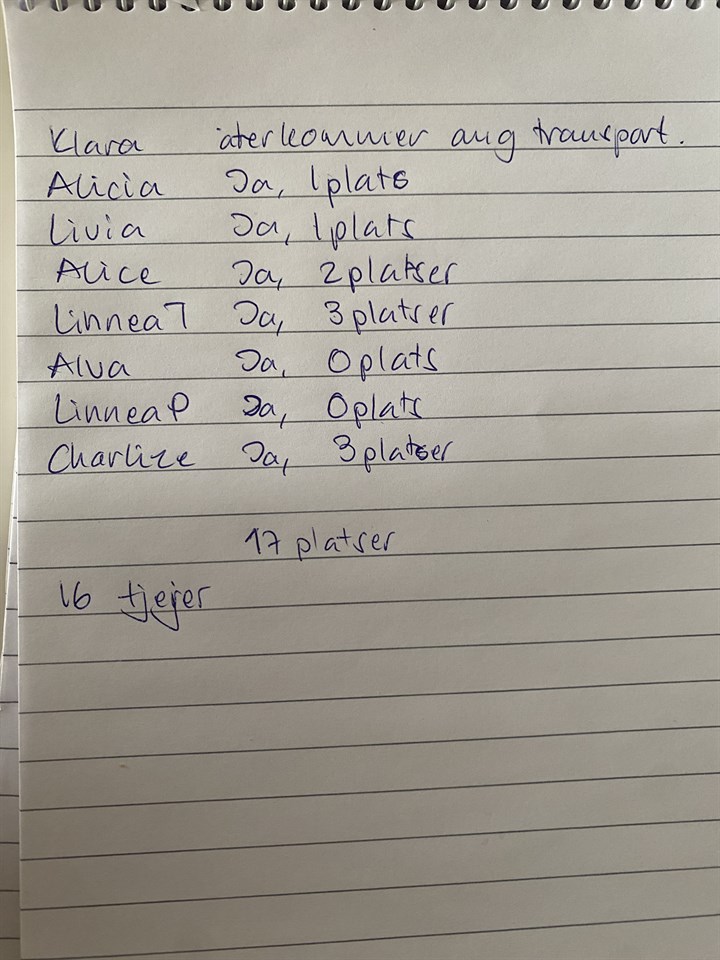 Klara återkommer ang transport.
Alicia Ja, 1 plats
Livia Ja, 1 plats
Alice Ja, 2 platser
Linnea T Ja, 3 platser
Alva Ja, 0 plats
Linnea P Ja, 0 plats
Charlize Ja, 3 platser
17 platser
16 tjejer